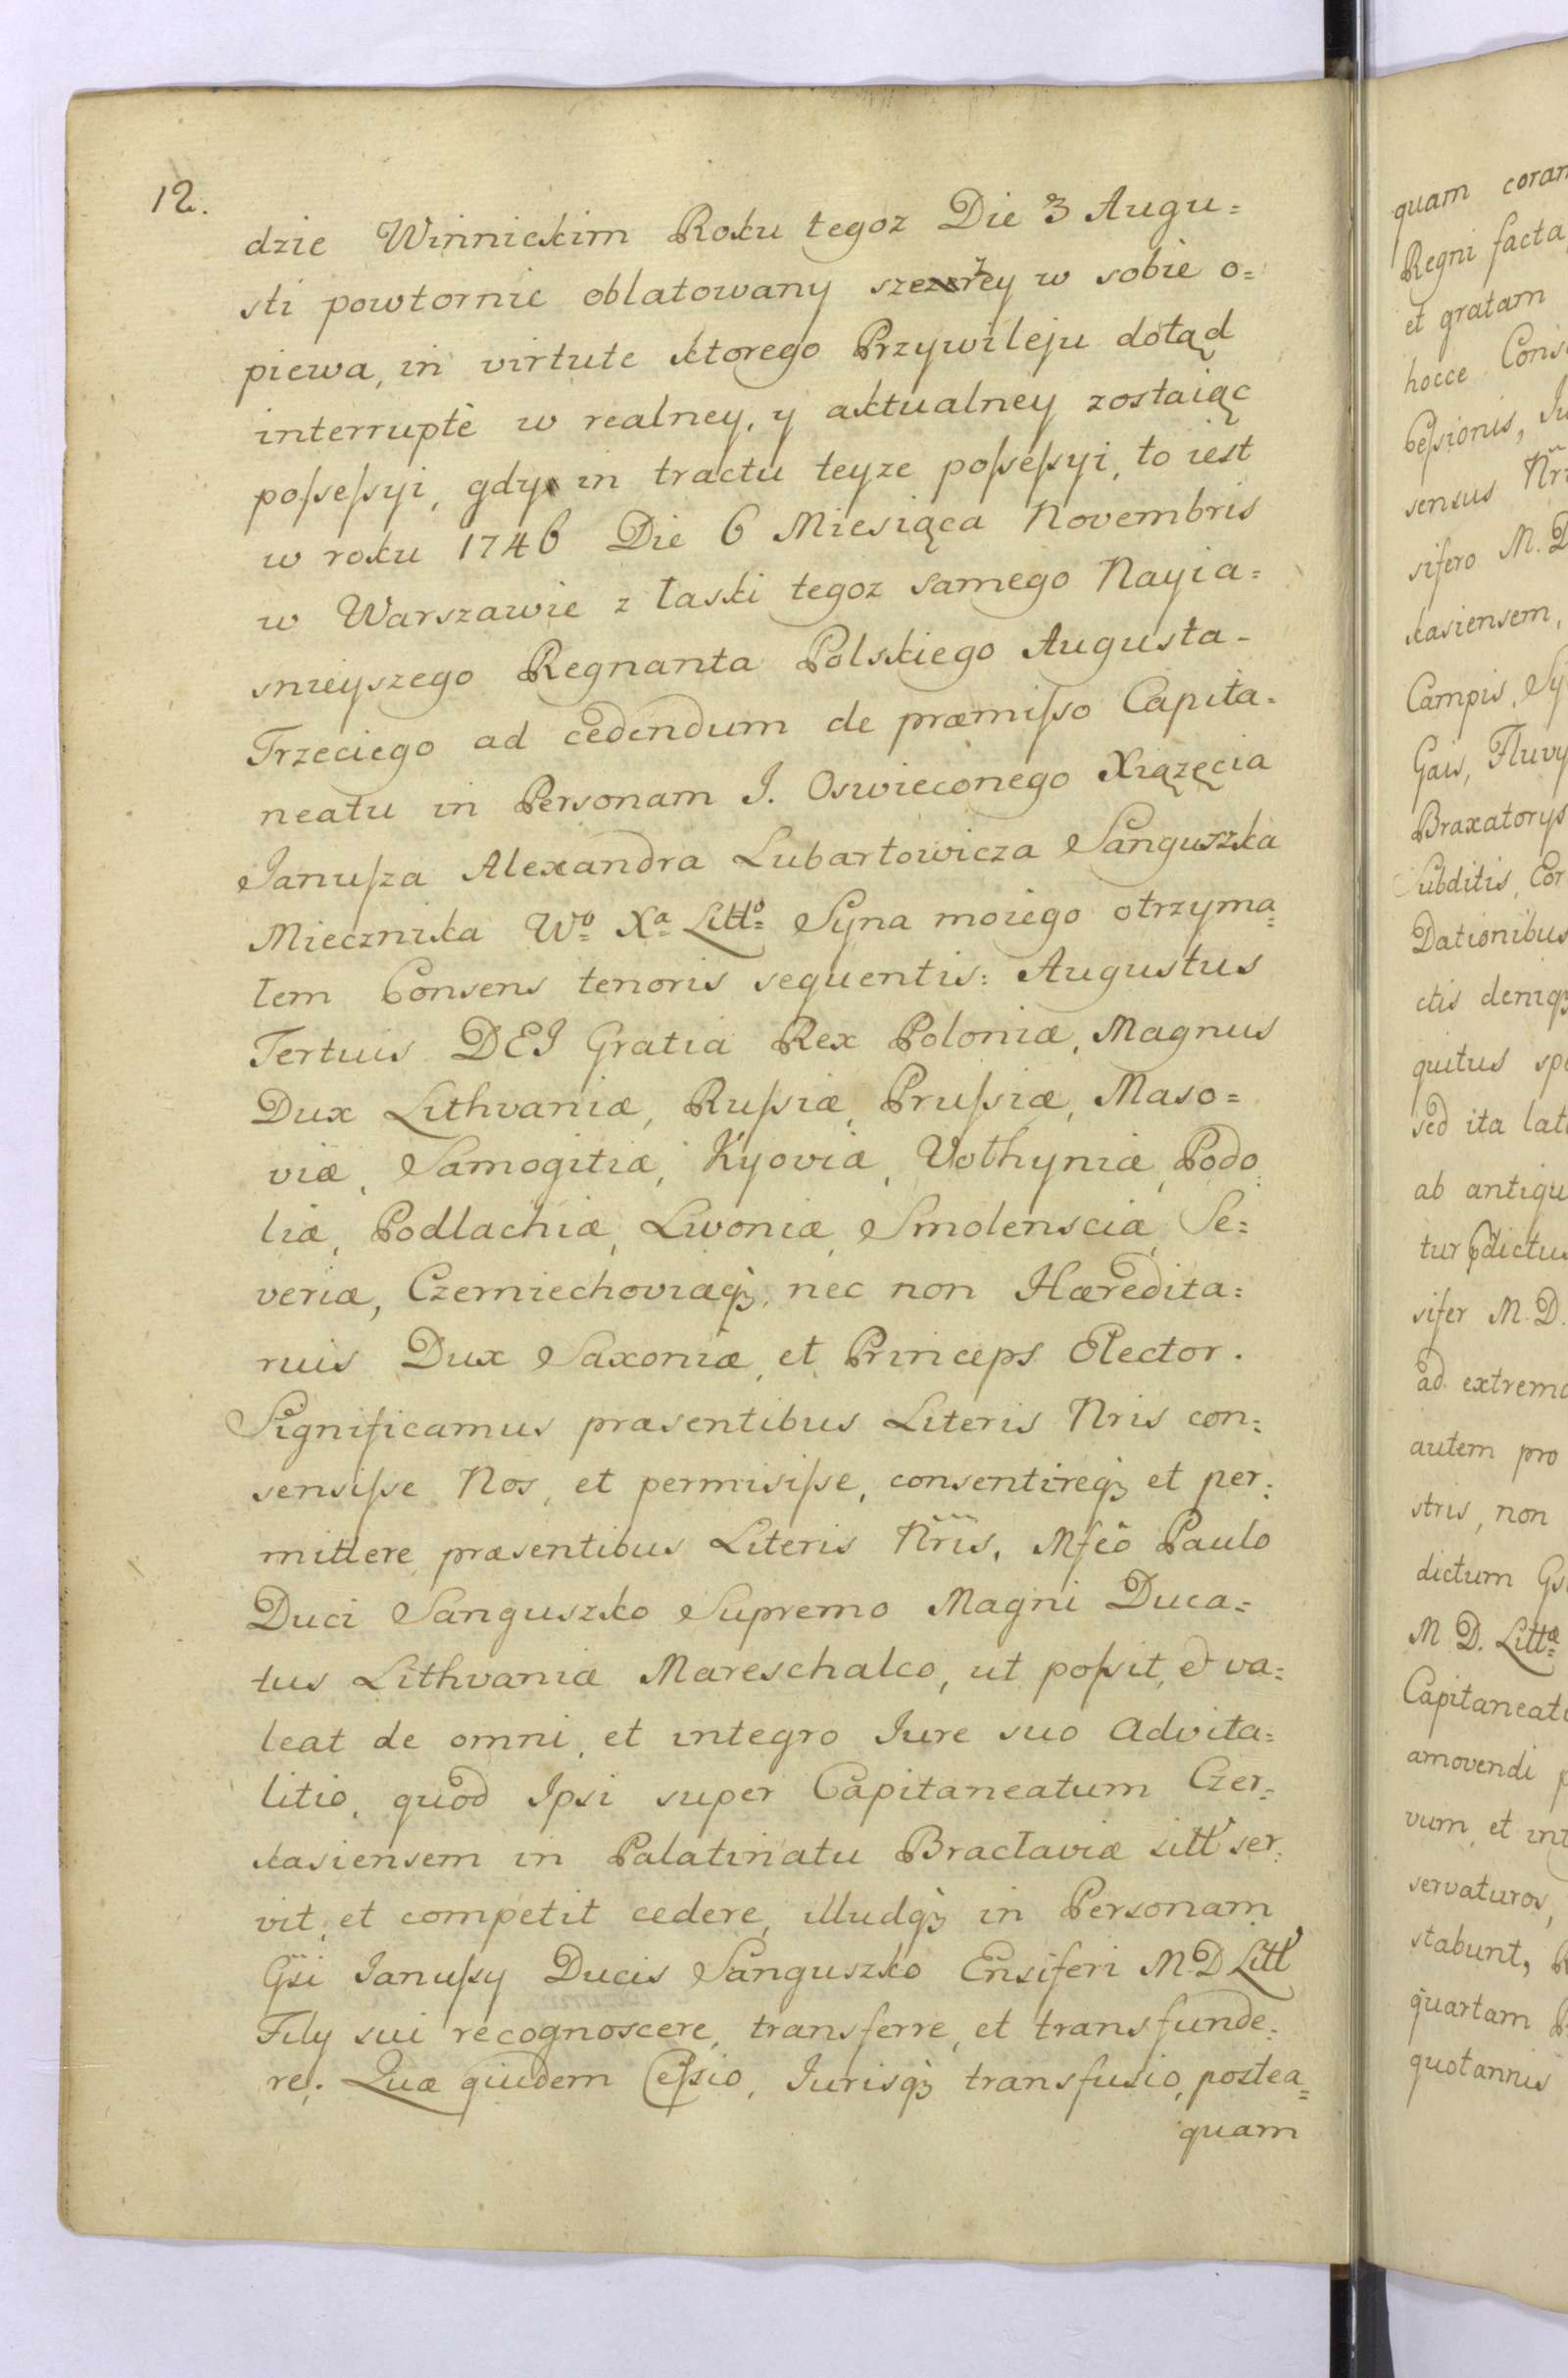 12.
dzie Winnickim Roku tegoz Die 3 Augu=
sti powtornie oblatowany szerzey w sobie o=
piewa, in virtute ktorego Przywileju dotąd
interruptè w realney, y aktualney zostaiąc
poſseſsyi, gdy in tractu teyze poſseſsyi, to iest
w roku 1746 Die 6 Miesiąca Novembris
w Warszawie z łaski tegoz samego Nayia=
snieyszego Regnanta Polskiego Augusta-
Trzeciego ad cedendum de præmiſso Capita=
neatu in Personam J. Oswieconego Xiązęcia
Januſza Alexandra Lubartowicza Sanguszka
Miecznika Wº Xª Littº Syna moiego otrzyma=
łem Consens tenoris sequentis: Augustus
Tertius DEI Gratia Rex Poloniæ, Magnus
Dux Lithvaniæ, Ruſsiæ, Pruſsiæ, Maso=
viæ, Samogitiæ, Kyoviæ, Volhyniæ, Podo=
liæ, Podlachiæ, Livoniæ, Smolensciæ, Se=
veriæ, Czerniechoviæq3, nec non Hæredita=
rius Dux Saxoniæ, et Princeps Elector.
Significamus præsentibus Literis Nris con=
sensiſse Nos, et permisiſse, consentireq3 et per=
mittere præsentibus Literis Nris, Mfco Paulo
Duci Sanguszko Supremo Magni Duca=
tus Lithvaniæ Mareschalco, ut poſsit, et va=
leat de omni, et integro Jure suo Advita=
litio, quod Ipsi super Capitaneatum Czer=
kasiensem in Palatinatu Bracłaviæ sitt' ser=
vit, et competit cedere, illudq3 in Personam
Gsi Januſsy Ducis Sanguszko Ensiferi M.D Litt'
Fily sui recognoscere, transferre, et transfunde=
re. Quæ quidem Ceſsio, Jurisq3 transfusio, postea=
quam
quam
Regni facta
et gratam
hocce
Ceſsionis,
sensus
sifero M. D
kasiensem,
Campis,
Gais, Fluvy
Braxatorys
Subditis,
Dationibus
ctis deniq3
quitus
sed ita
ab
tur
sifer M. D.
ad
autem pro
stris, non
dictum
M D. Littæ
amovendi
vum, et
servaturos,
stabunt,
quartam
quotannis